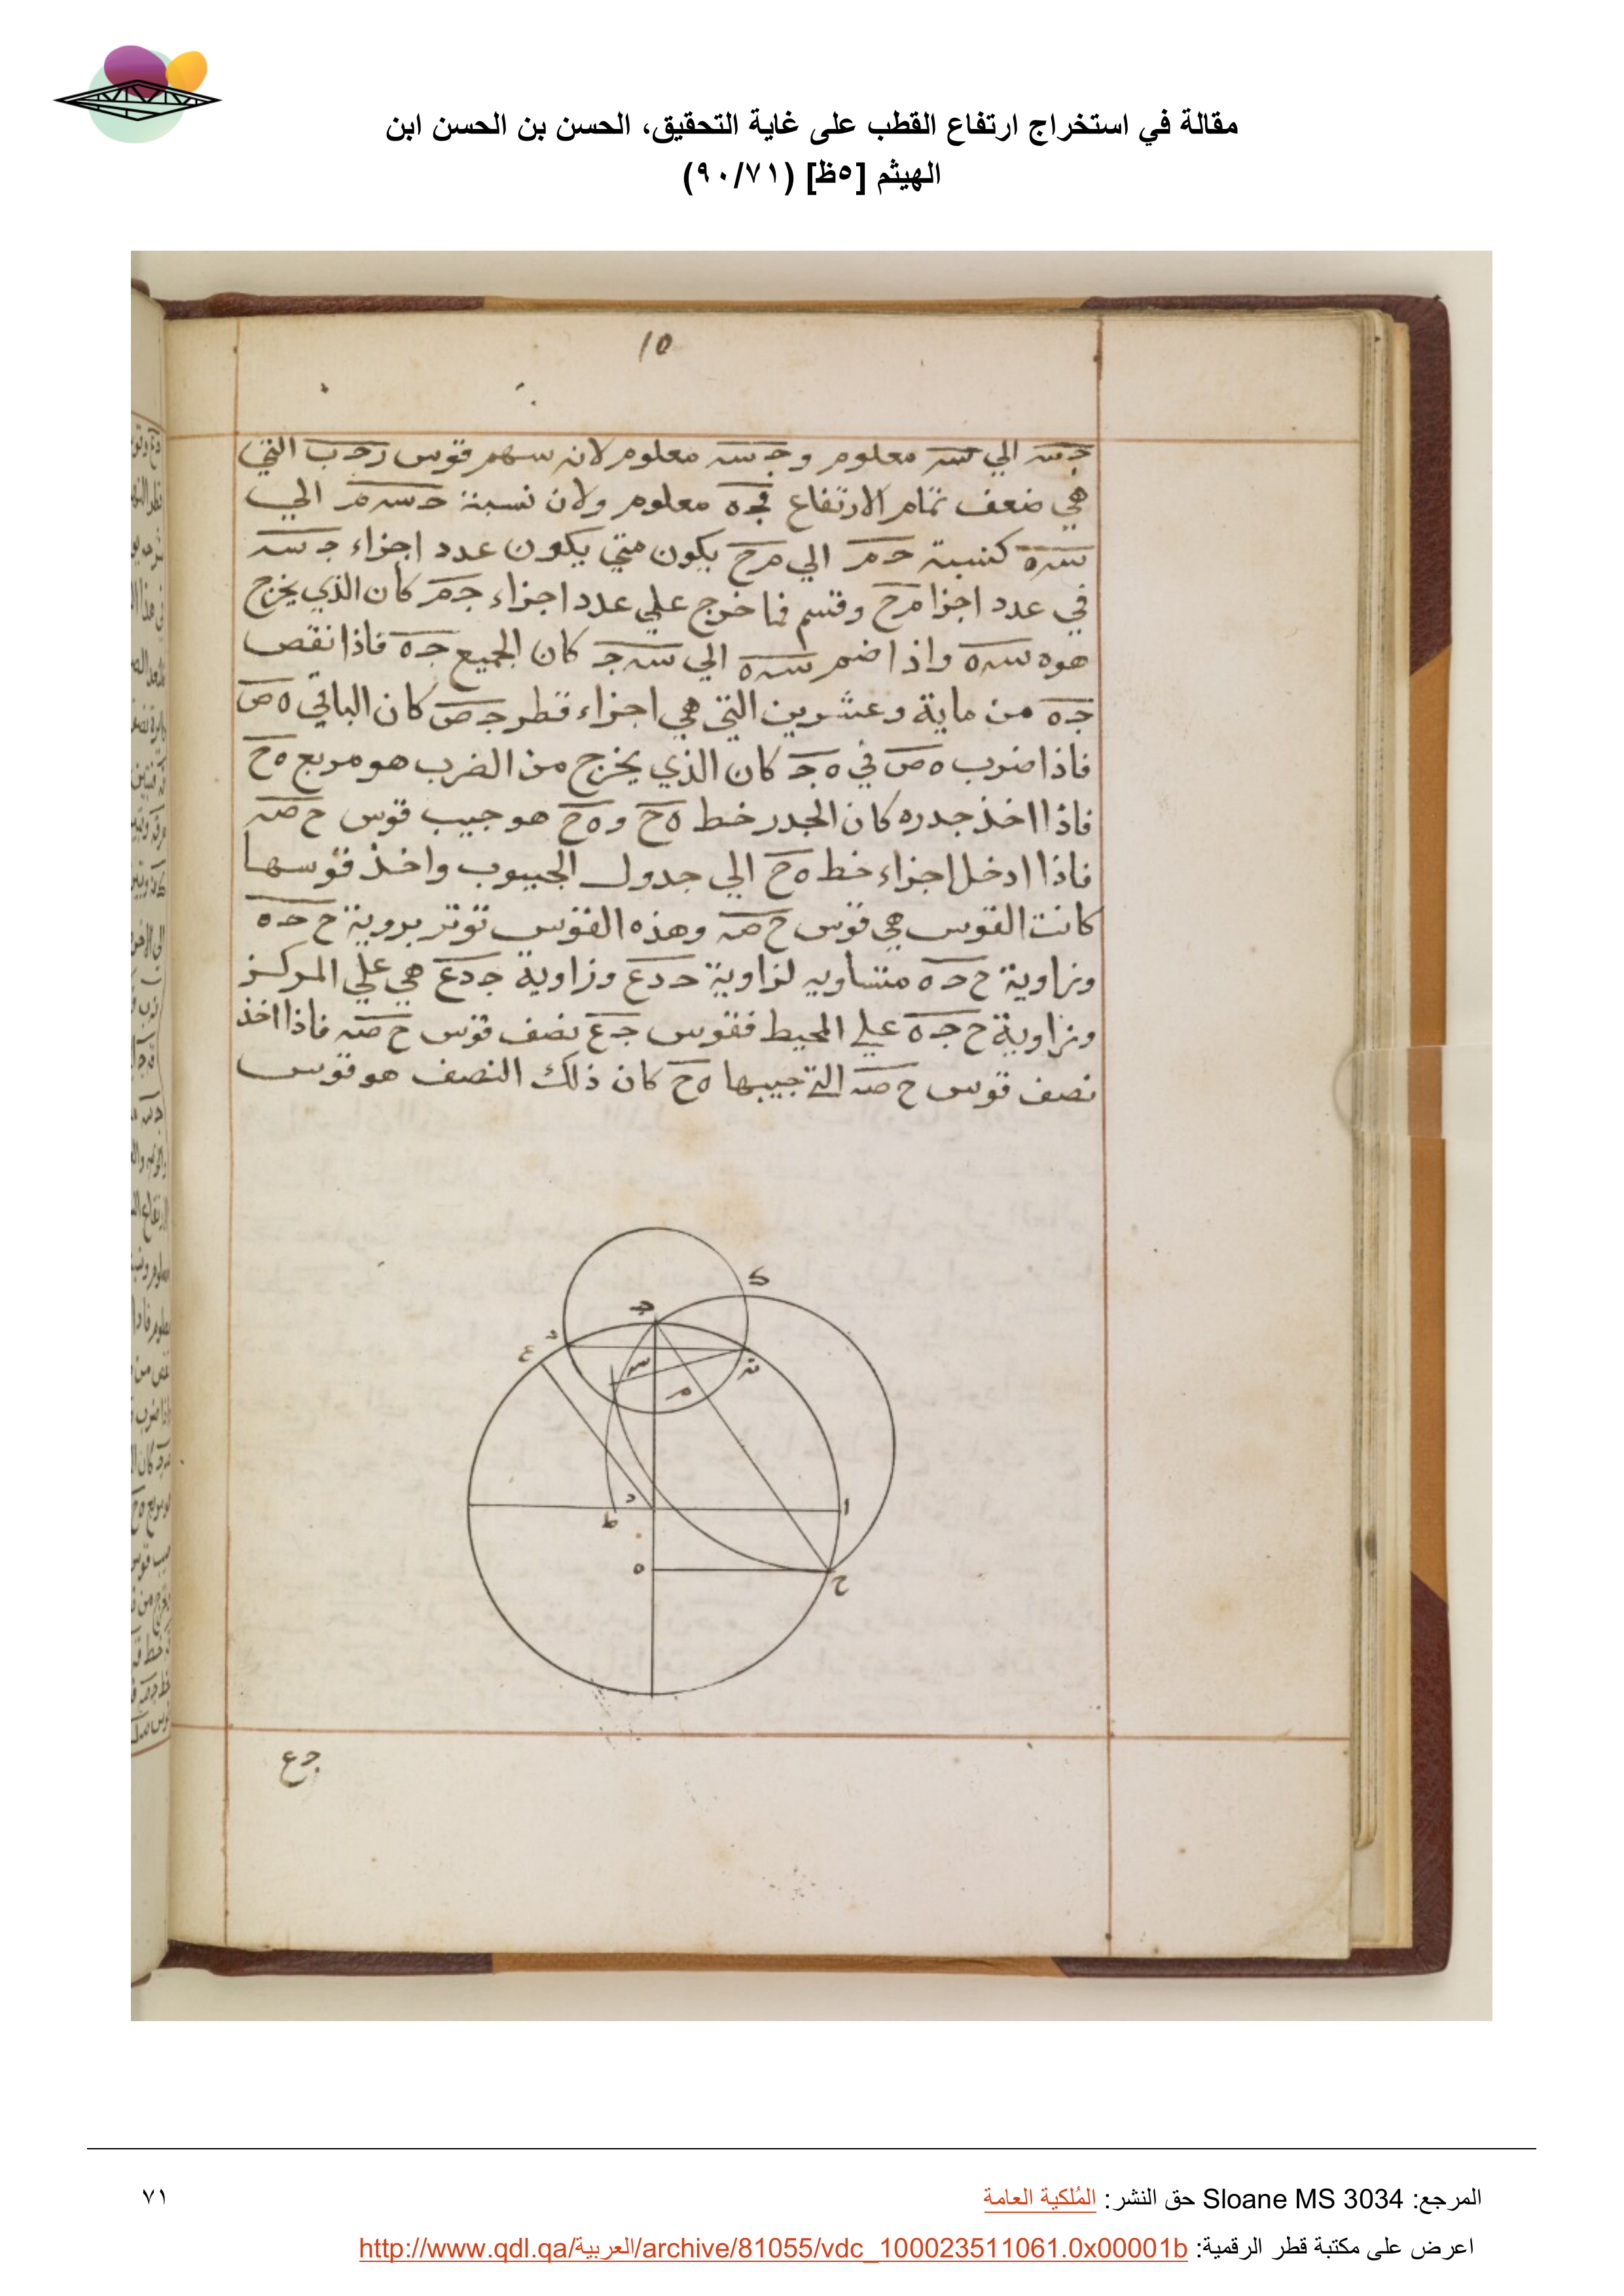 مقالة في استخراج ارتفاع القطب على غاية التحقيق، الحسن بن الحسن ابن
الهيثم [٥ظ] (٩٠/٧١)
10
جسه الي سه معلوم وجسه معلوم لانه سهم قوس رجب التي
هي ضعف تمام الارتفاع فجه معلوم ولان نسبة حسم الي
سه كنسبة حم الي مح يكون متي يكون عدد اجزاء جسه
في عدد اجزا مح وقسم فما خرج علي عدد اجزاء جم كان الذي يخرج
هوه سه واذا ضم سه الي سج كان الجميع جه فاذا نقص
جه من ماية وعشرين التي هي اجزاء قطر جص كان الباقي هص
فاذا ضرب هص في هج كان الذي يخرج من الضرب هو مربع هح
فاذا اخذ جدره كان الجدر خط هح وهح هو جيب قوس ح صه
فاذا ادخل اجزاء خط هح الي جدول الجيوب واخذ قوسها
كانت القوس هي قوس ح صه وهذه القوس توتر بروية ح حه
وزاوية ح حه متساويه لزاوية حدع وزاوية جدع هي علي المركز
وزاوية ح جه علي المحيط فقوس جع نصف قوس ح صه فاذا اخذ
نصف قوس ح صه التي جيبها هح كان ذلك النصف هو قوس
ج
ع
سه
م
د
ط
ا
ه
ح
جع
المرجع: Sloane MS 3034 حق النشر: المُلكية العامة
٧١
اعرض على مكتبة قطر الرقمية: http://www.qdl.qa/العربية/archive/81055/vdc_100023511061.0x00001b